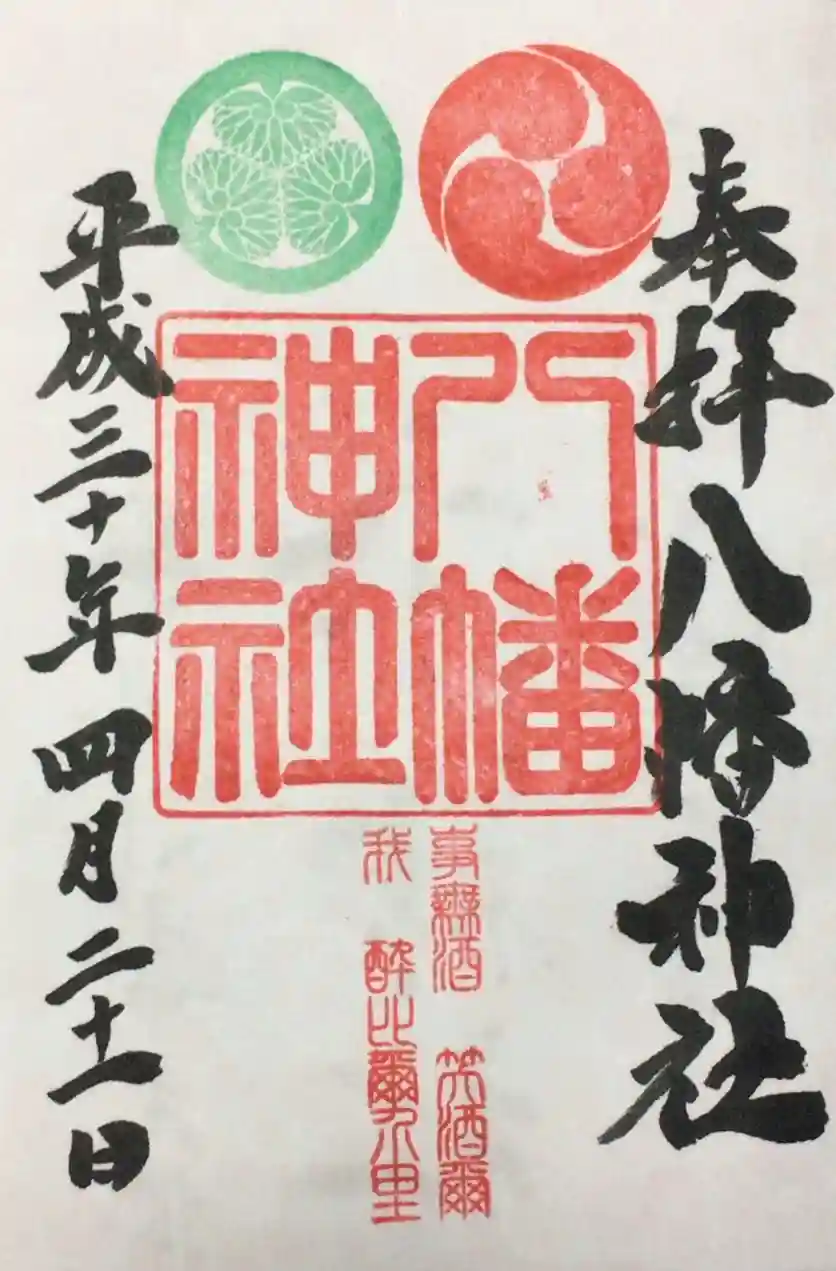 奉拝八幡神社
八幡
神社
事無酒 笑酒爾
我 酔比爾介里
平成三十年 四月二十一日